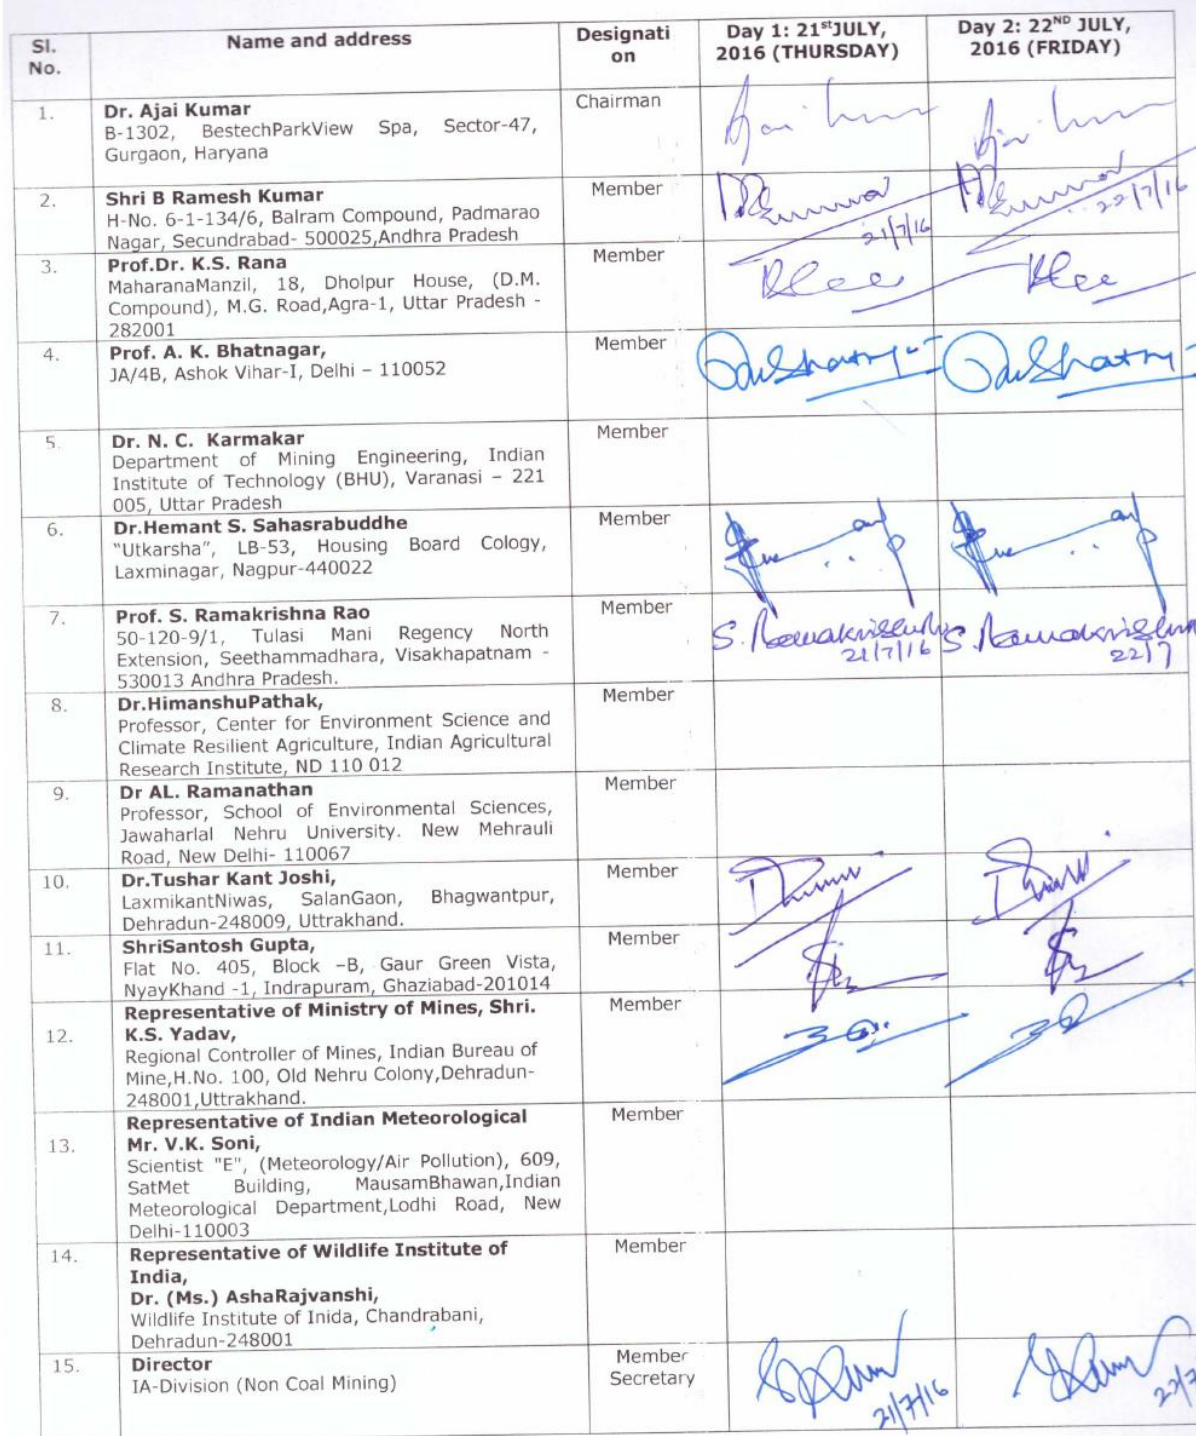 Sl. No.
Name and address
Designati on
Day 1: 21stJULY, 2016 (THURSDAY)
Day 2: 22ND JULY, 2016 (FRIDAY)
1.
Dr. Ajai Kumar
Chairman
B-1302, BestechParkView Spa, Sector-47,
Gurgaon, Haryana
2.
Shri B Ramesh Kumar
Member
H-No. 6-1-134/6, Balram Compound, Padmarao
Nagar, Secundrabad- 500025,Andhra Pradesh
21/7/16
22/7/16
3.
Prof.Dr. K.S. Rana
Member
MaharanaManzil, 18, Dholpur House, (D.M.
Compound), M.G. Road,Agra-1, Uttar Pradesh -
282001
4.
Prof. A. K. Bhatnagar,
Member
JA/4B, Ashok Vihar-I, Delhi – 110052
5.
Dr. N. C. Karmakar
Member
Department of Mining Engineering, Indian
Institute of Technology (BHU), Varanasi – 221
005, Uttar Pradesh
6.
Dr.Hemant S. Sahasrabuddhe
Member
"Utkarsha", LB-53, Housing Board Cology,
Laxminagar, Nagpur-440022
7.
Prof. S. Ramakrishna Rao
Member
50-120-9/1, Tulasi Mani Regency North
Extension, Seethammadhara, Visakhapatnam -
530013 Andhra Pradesh.
21/7/16
22/7
8.
Dr.HimanshuPathak,
Member
Professor, Center for Environment Science and
Climate Resilient Agriculture, Indian Agricultural
Research Institute, ND 110 012
9.
Dr AL. Ramanathan
Member
Professor, School of Environmental Sciences,
Jawaharlal Nehru University. New Mehrauli
Road, New Delhi- 110067
10.
Dr.Tushar Kant Joshi,
Member
LaxmikantNiwas, SalanGaon, Bhagwantpur,
Dehradun-248009, Uttrakhand.
11.
ShriSantosh Gupta,
Member
Flat No. 405, Block –B, Gaur Green Vista,
NyayKhand -1, Indrapuram, Ghaziabad-201014
12.
Representative of Ministry of Mines, Shri.
Member
K.S. Yadav,
Regional Controller of Mines, Indian Bureau of
Mine,H.No. 100, Old Nehru Colony,Dehradun-
248001,Uttrakhand.
13.
Representative of Indian Meteorological
Member
Mr. V.K. Soni,
Scientist "E", (Meteorology/Air Pollution), 609,
SatMet Building, MausamBhawan,Indian
Meteorological Department,Lodhi Road, New
Delhi-110003
14.
Representative of Wildlife Institute of
Member
India,
Dr. (Ms.) AshaRajvanshi,
Wildlife Institute of Inida, Chandrabani,
Dehradun-248001
15.
Director
Member Secretary
IA-Division (Non Coal Mining)
21/7/16